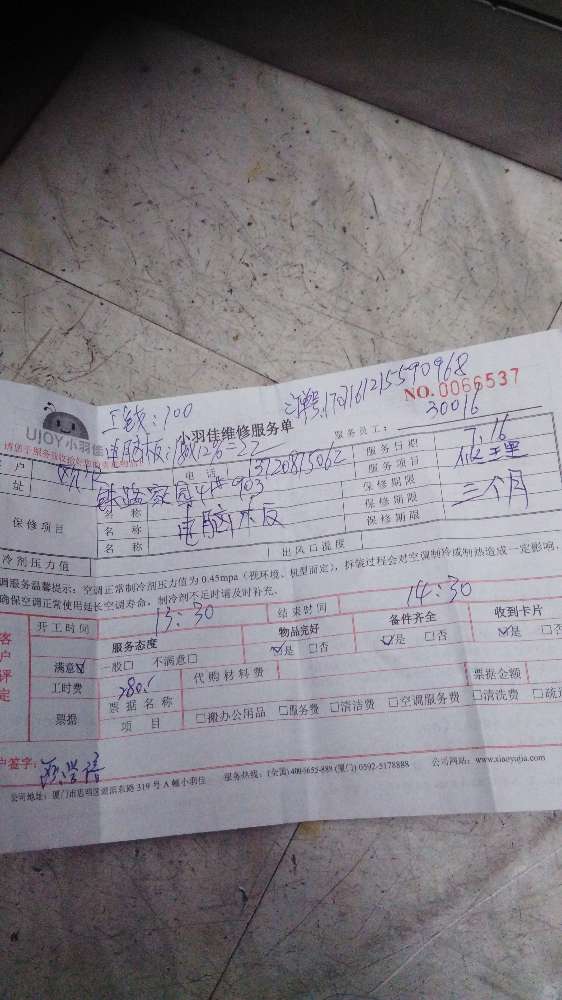 工钱:100
订单号1701612155590968
NO.0066537
30016
UJOY小羽佳
电脑板:180
小羽佳维修服务单
服务员工:
服务日期 7.16
电话 13720815062
服务项目
址 铁路家园4#903
名称
保修期限 三个月
保修项目
名称 电脑板
保修期限
名称
保修期限
冷剂压力值
出风口温度
调服务温馨提示:空调正常制冷剂压力值为0.45mpa(视环境、机型而定),拆装过程会对空调制冷或制热造成一定影响,
确保空调正常使用延长空调寿命,制冷剂不足时请及时补充。
开工时间 13:30 结束时间 14:30
客户评定
服务态度 物品完好 备件齐全 收到卡片
满意☑ 一般□ 不满意□ ☑是 □否 ☑是 □否 ☑是 □否
工时费 280 代购材料费
票据 票据名称 票据金额
项目 □搬办公用品 □服务费 □清洁费 □空调服务费 □清洗费 □疏
户签字:
公司地址:厦门市思明区 319号A幢小羽佳 服务热线:(全国)400-9655-889 (厦门) 0592-5178888 公司网站:www.xiaoyujia.com